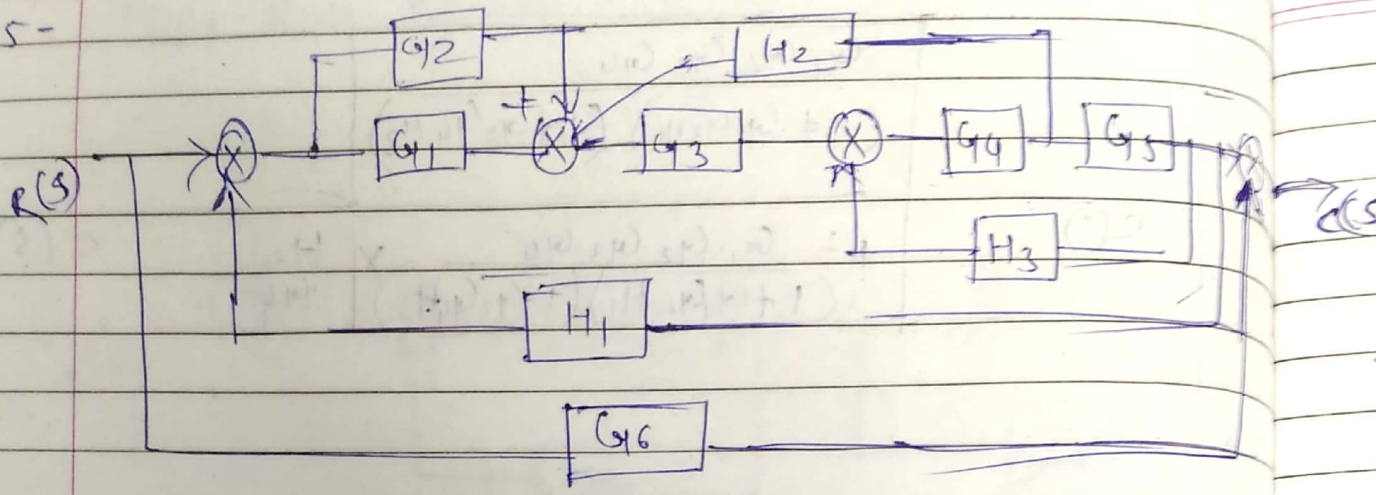 5-
G2
H2
+
R(S)
G1
G3
G4
G5
C(S
H3
H1
G6